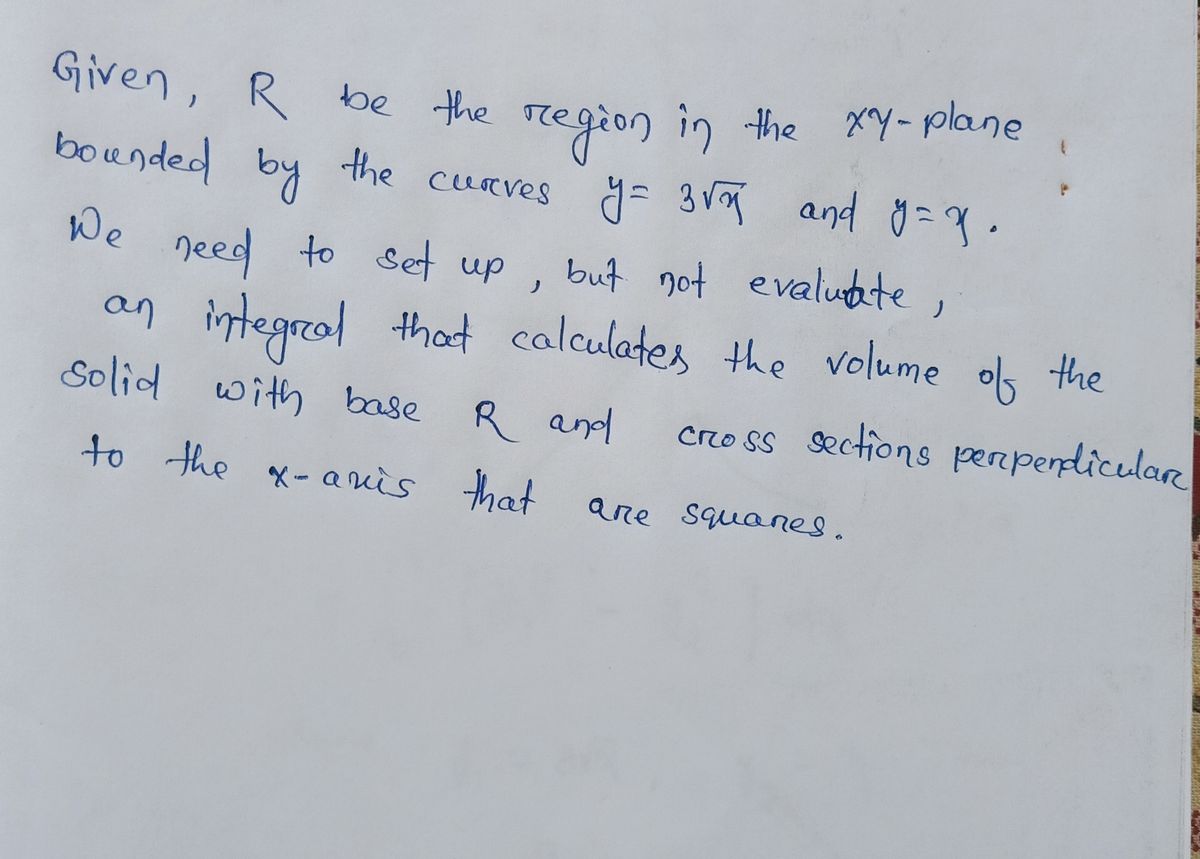 Given, R be the region in the xy-plane
bounded by the curves y = 3√x and y = x.
We need to set up, but not evaluate,
an integral that calculates the volume of the
solid with base R and cross sections perpendicular
to the x-axis that are squares.